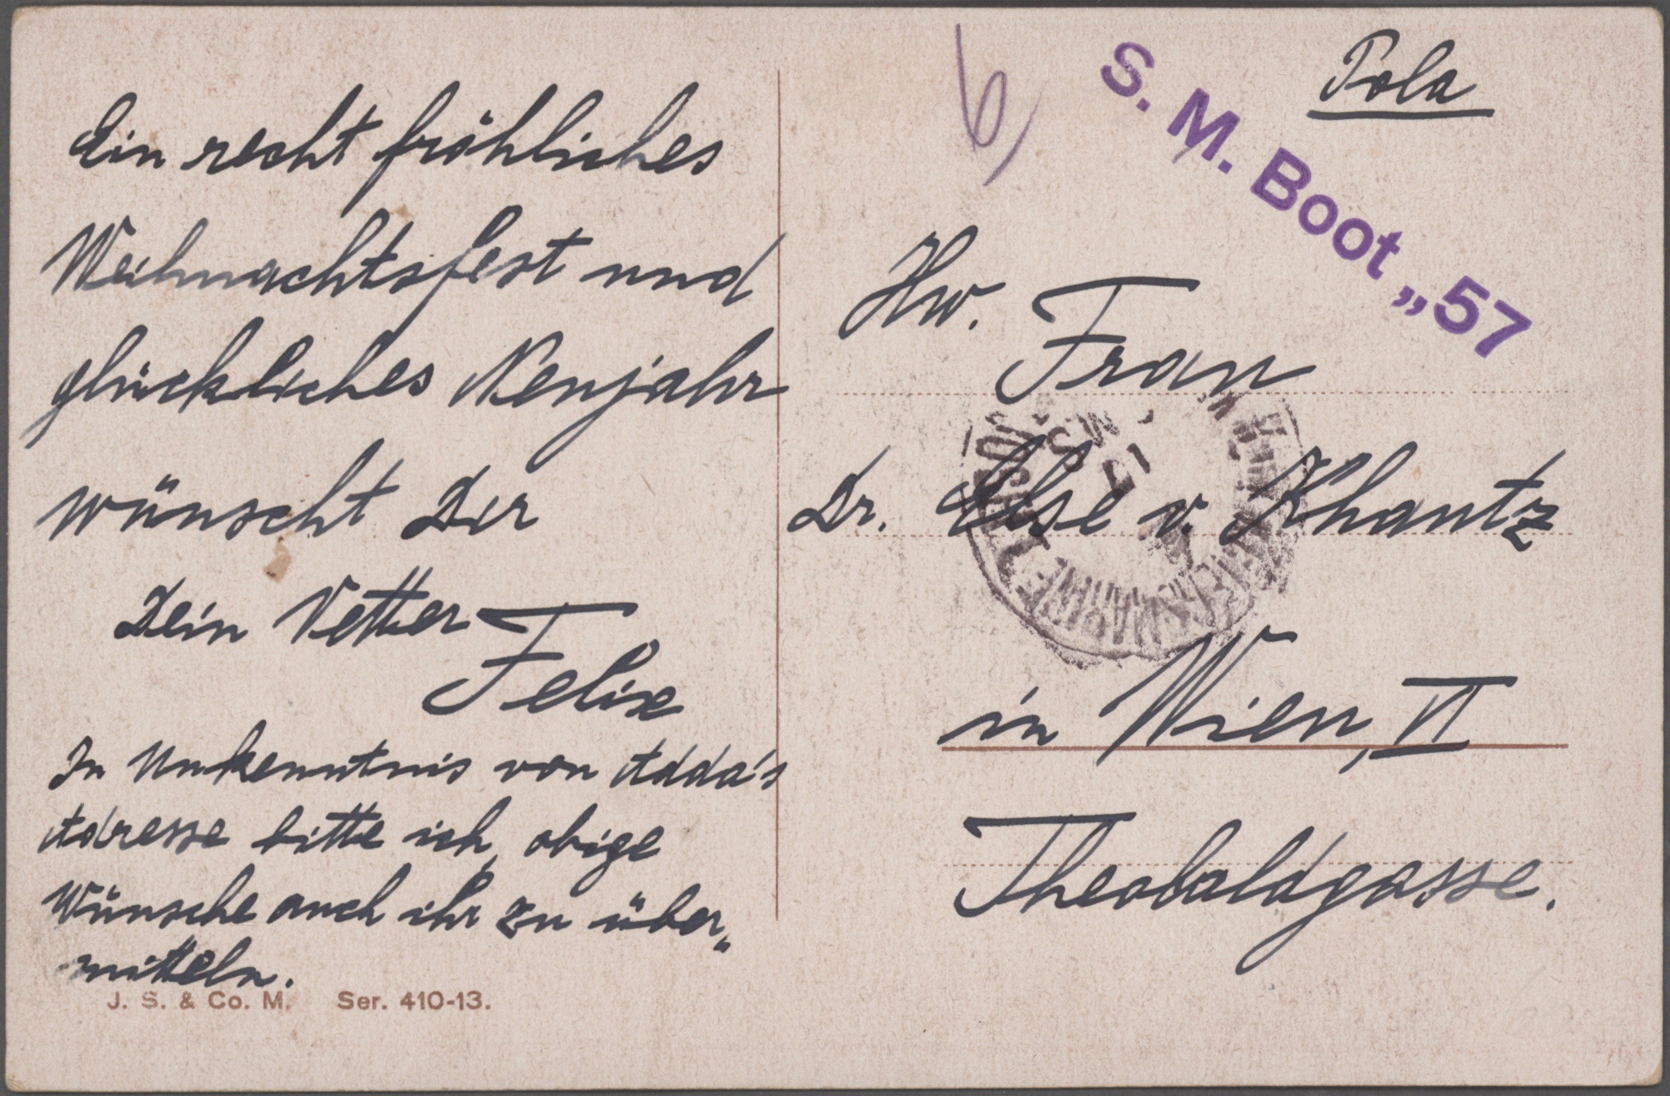 Ein recht fröhliches
Weihnachtsfest und
glückliches Neujahr
wünscht Dir
Dein Vetter
Felix
In Unkenntnis von Adda's
Adresse bitte ich, obige
Wünsche auch ihr zu über„
mitteln.
J. S. & Co. M. Ser. 410-13.
6
S. M. Boot „57
Pola
Frau
Dr. Else v. Khautz
in Wien, VI
Theobaldgasse.